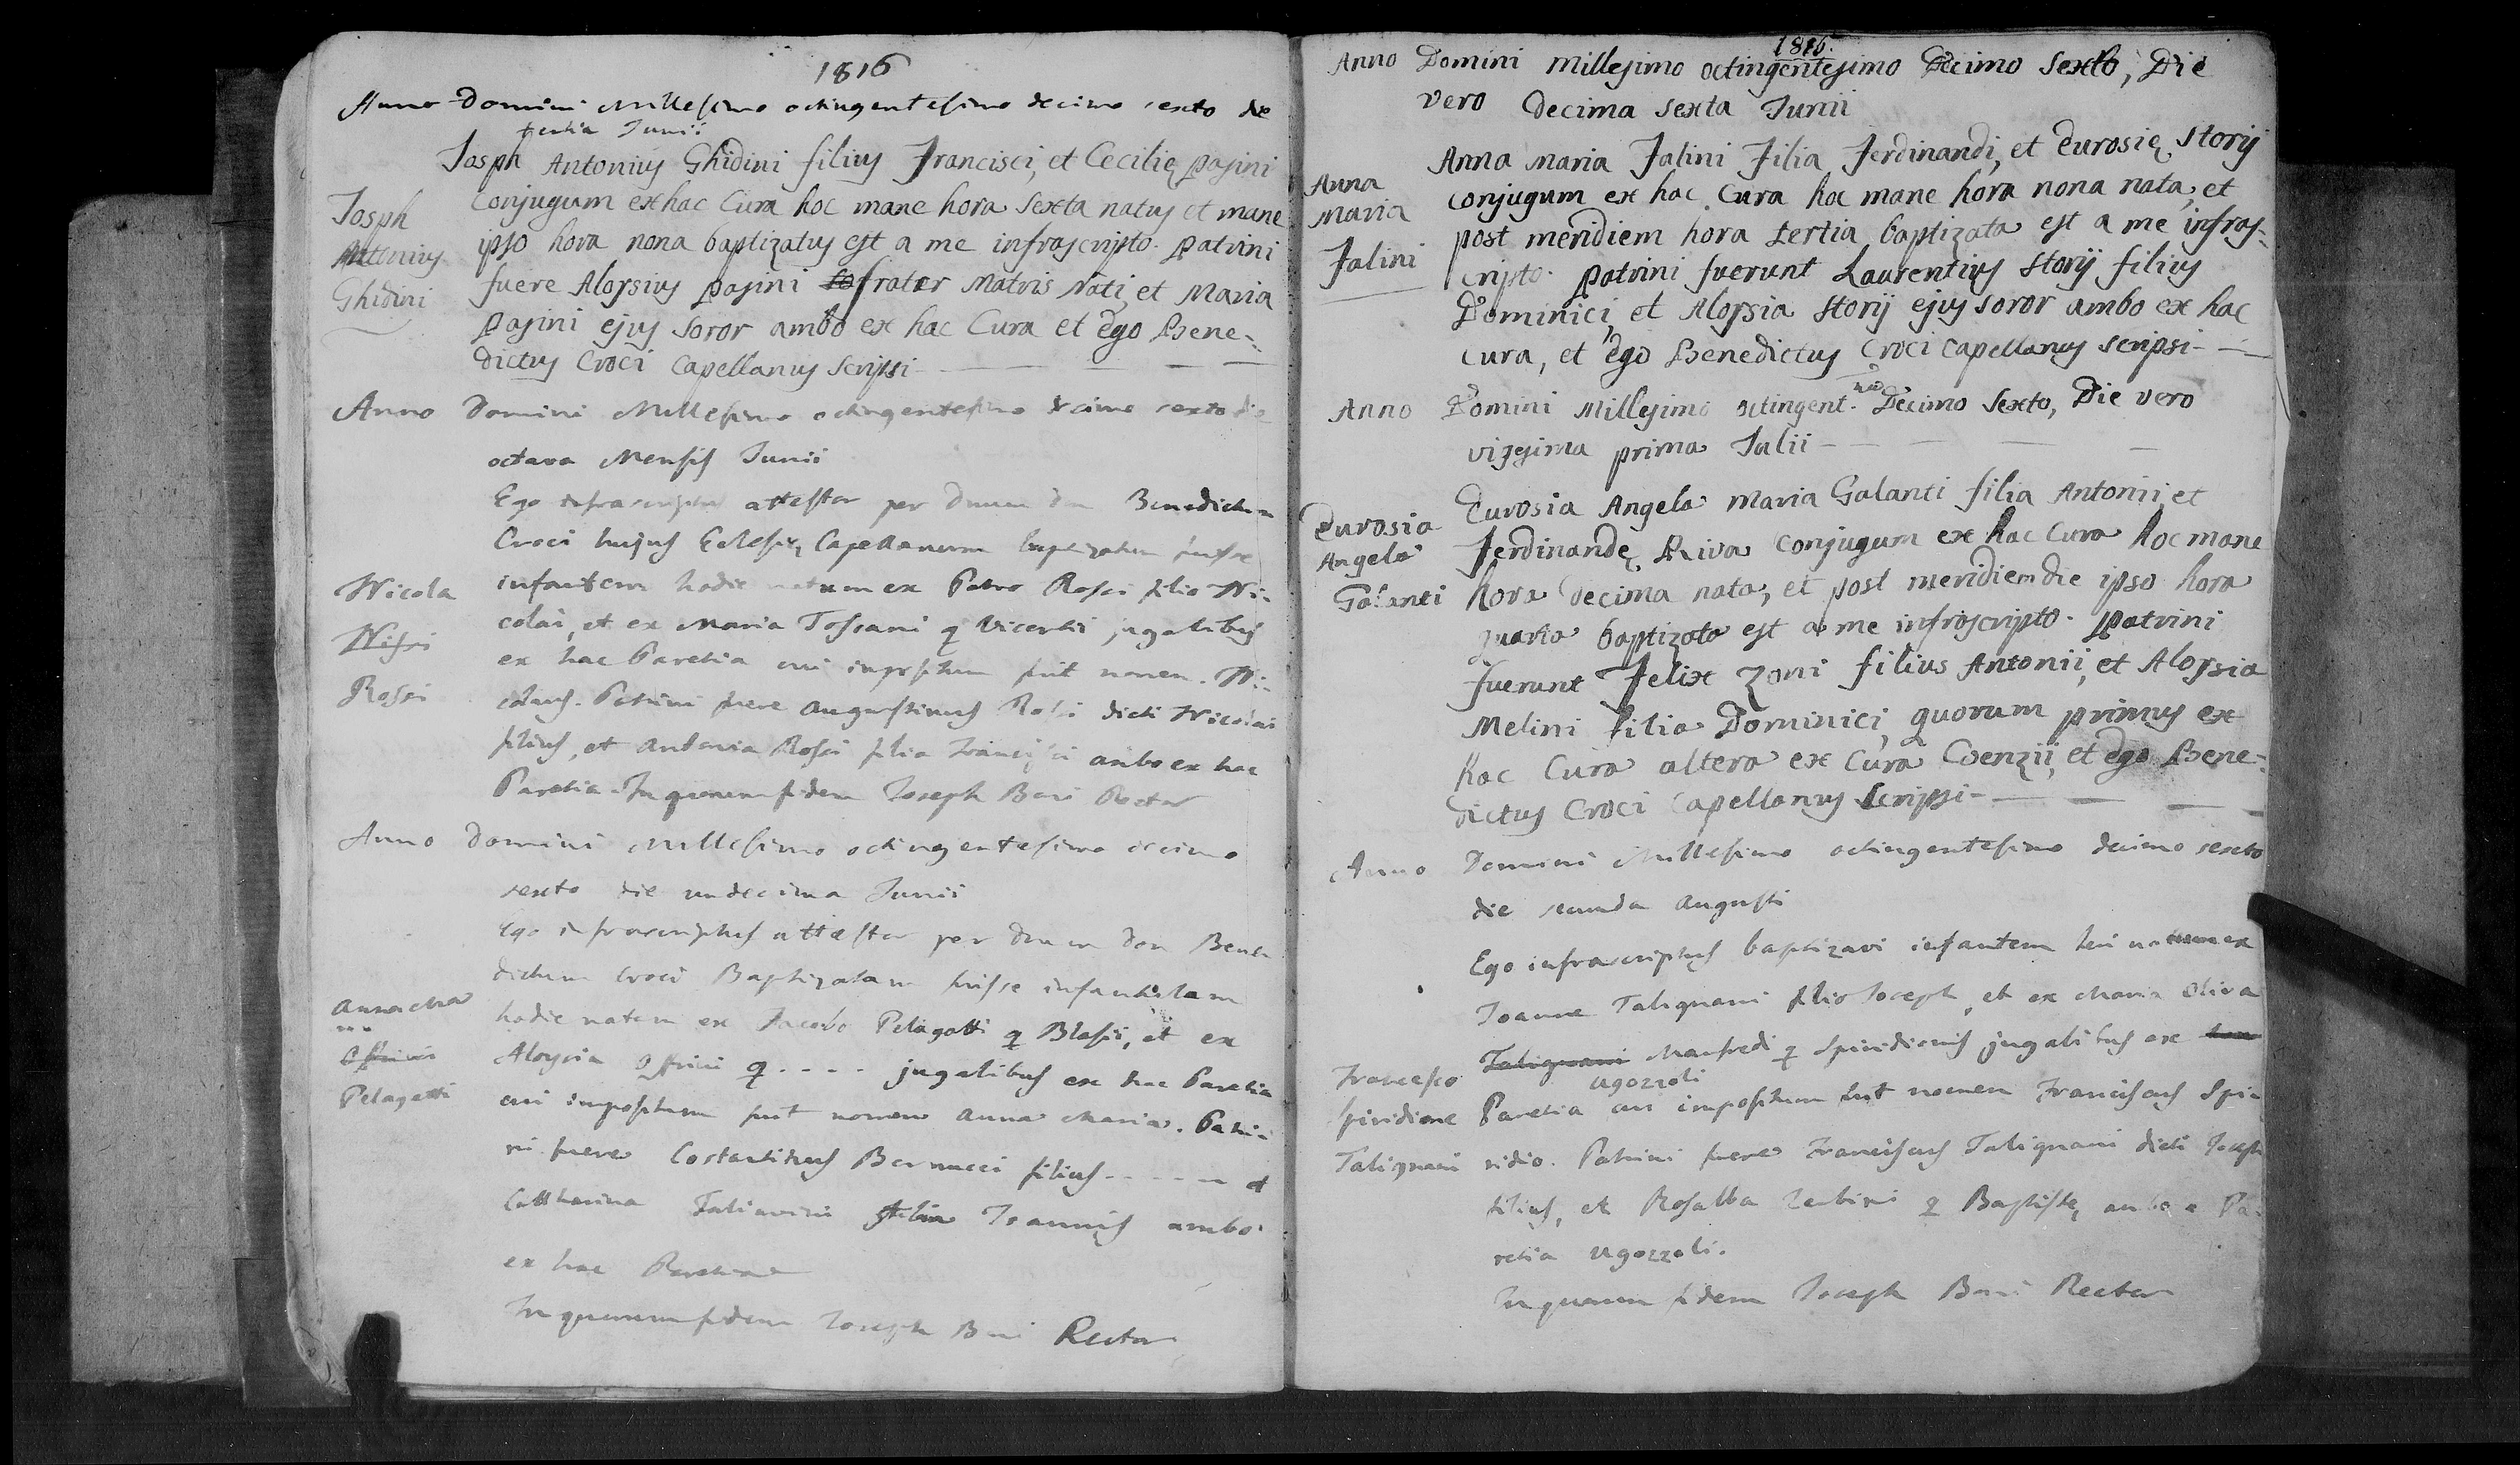 1816
Anno Domini Millesimo octingentesimo decimo sexto die
tertia Junii
Josph Antonius Ghidini filius Francisci, et Cecilię Pasini
Josph
Antonius
Ghidini
Conjugum ex hac Cura hoc mane hora Sexta natus et mane
ipso hora nona baptizatus est a me infrascripto. Patrini
fuere Aloysius Pasini frater Matris Nati, et Maria
Pasini ejus Soror ambo ex hac Cura et Ego Bene-
dictus Croci Capellanus Scripsi
Anno Domini Millesimo octingentesimo decimo sexto die
octava Mensis Junii
Ego infrascriptus attestor per Dnum Dn Benedictum
Croci hujus Eclesię Capellanum baptizatum fuisse
Nicola
Rossi
infantem hodie natum ex Petro Rossi filio Ni-
colai, et ex Maria Tossani q Vicentii jugalibus
ex hac Paretia cui impositum fuit nomen. Ni-
colaus. Patrini fuere Augustinus Rossi dicti Nicolai
filius, et Antonia Rossi filia Francisci ambo ex hac
Paretia. In quorum fidem Joseph Boni Rector
Anno Domini Millesimo octingentesimo decimo
sexto die undecima Junii
Ego infrascriptus attestor per Dnum Don Bene
dictum Croci Baptizatam fuisse infantulam
Anna Ma
Offrini
Pelagatti
hodie natam ex Jacobo Pelagatti q Blasii, et ex
Aloysia Offrini q .... jugalibus ex hac Paretia
cui impositum fuit nomen Anna Maria. Patri-
ni fuere Costantinus Bernucci filius ...... et
Cattharina Taliavini filia Joannis ambo
ex hac Paretia
In quorum fidem Joseph Boni Rector
1816.
Anno Domini Millesimo octingentesimo Decimo Sexto, Die
vero Decima Sexta Junii
Anna Maria Falini Filia Ferdinandi, et Eurosię Storij
Anna
Maria
Falini
conjugum ex hac Cura hoc mane hora nona nata, et
post meridiem hora tertia baptizata est a me infras-
cripto. Patrini fuerunt Laurentius Storij filius
Dominici, et Aloysia Storij ejus soror ambo ex hac
cura, et Ego Benedictus Croci Capellanus scripsi
Anno Domini Millesimo octingent. Decimo Sexto, Die vero
vizesima prima Julii
Eurosia
Angela
Galanti
Eurosia Angela Maria Galanti filia Antonii, et
Ferdinandę Riva Conjugum ex hac Cura hoc mane
hora Decima nata, et post meridiem die ipso hora
quarta baptizata est a me infrascripto. Patrini
fuerunt Felix Zoni filius Antonii, et Aloysia
Melini filia Dominici, quorum primus ex
hac Cura altera ex Cura Coenzii, et ego Bene-
dictus Croci Capellanus Scripsi
Anno Domini Millesimo octingentesimo decimo sexto
die secunda Augusti
Ego infrascriptus baptizavi infantem heri natum ex
Joanne Talignani filio Joseph, et ex Maria Oliva
Talignani Manfredi q Spiridionis jugalibus ex
Ugozzoli
Francesco
Spiridione
Talignani
Paretia cui impositum fuit nomen Franciscus Spi-
ridio. Patrini fuere Franciscus Talignani dicti Joseph
filius, et Rosalba Zerbini q Baptistę ambo e Pa-
retia Ugozzoli.
In quorum fidem Joseph Boni Rector